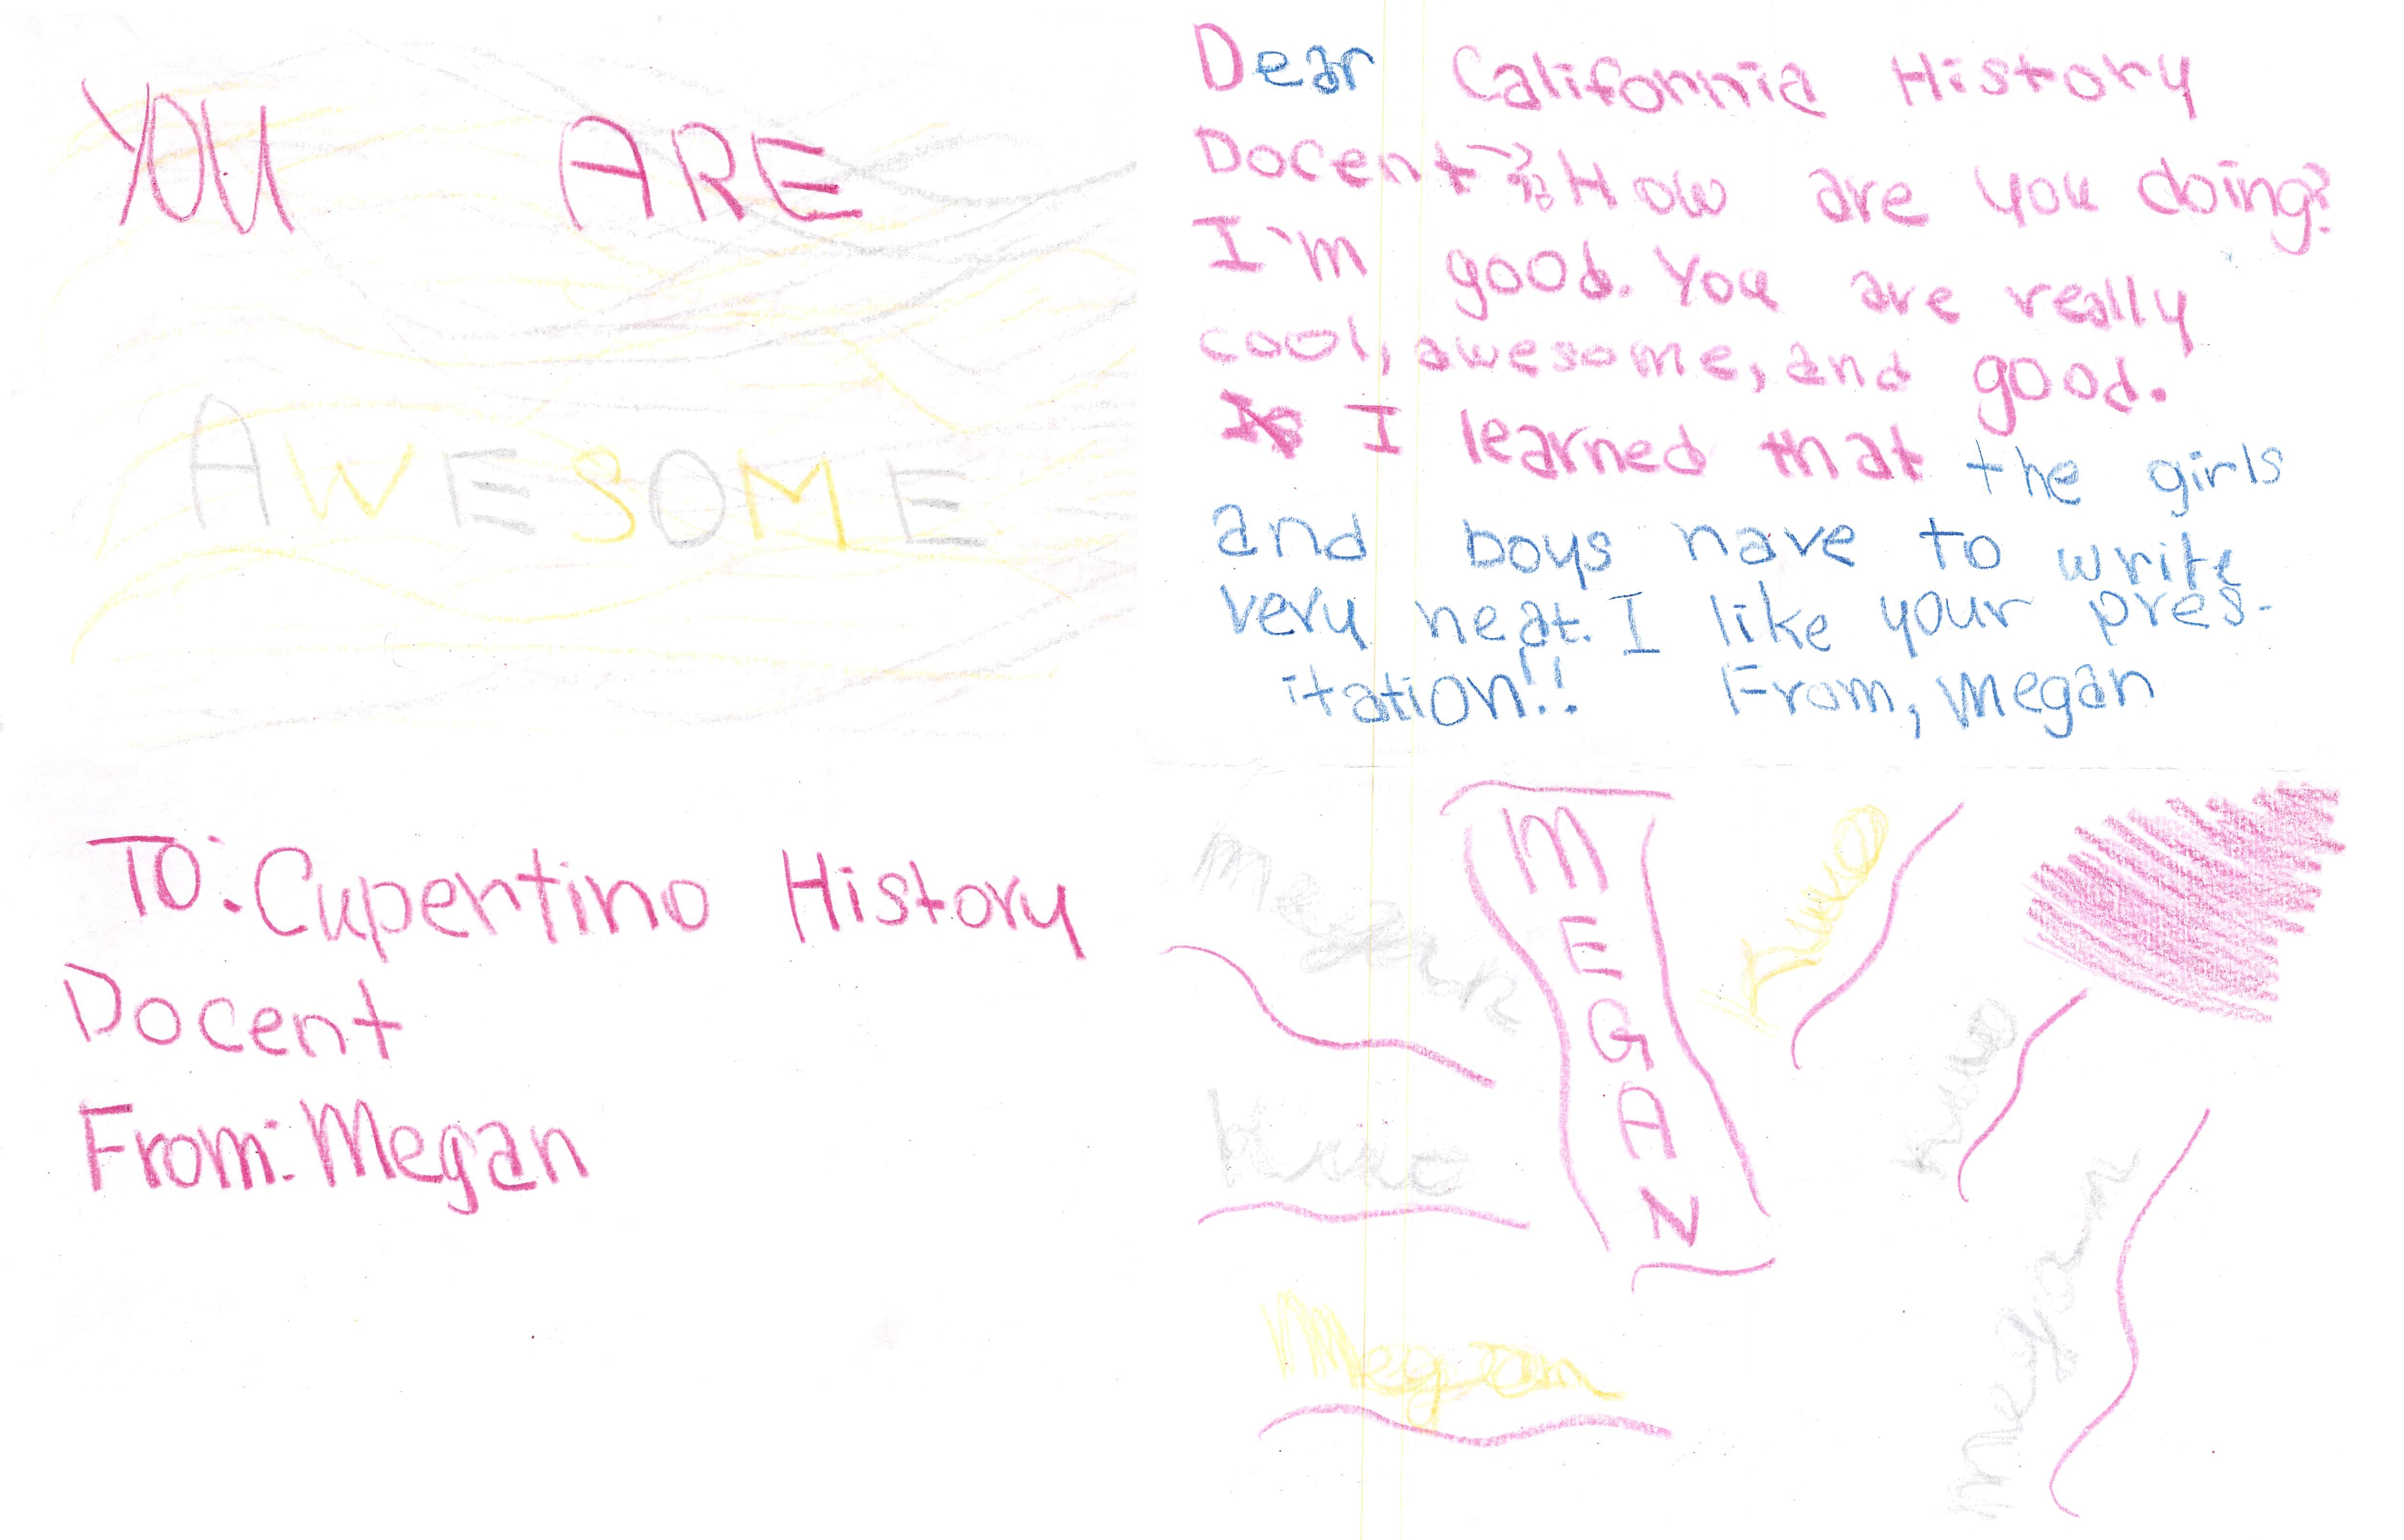 YOU ARE
AWESOME
Dear California History
Docent → How are you doing?
I'm good. You are really
cool, awesome, and good.
I learned that the girls
and boys have to write
very neat. I like your pres-
itation!! From, Megan
To: Cupertino History
Docent
From: Megan
Megan
MEGAN
Megan
Megan